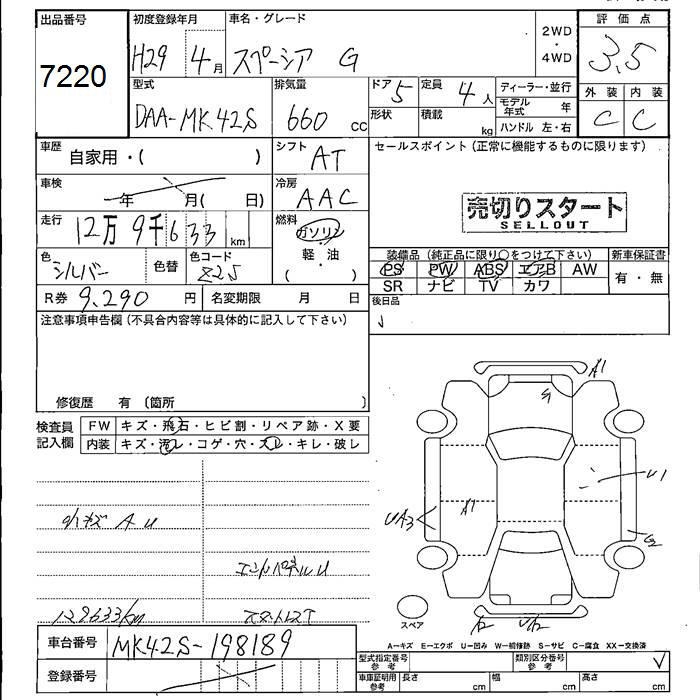 出品番号
7220
初度登録年月
H29 4月
車名・グレード
スペーシア G
2WD
・
4WD
評価点
3.5
型式
DAA-MK42S
排気量
660 cc
ドア
5
形状
定員
4人
積載
kg
ディーラー・並行
モデル年式 年
ハンドル 左・右
外装 内装
C C
車歴
自家用・( )
シフト
AT
セールスポイント (正常に機能するものに限ります)
売切りスタート
SELLOUT
車検
年 月( 日)
冷房
AAC
走行
12万9千633 km
燃料
ガソリン
軽・油
( )
色
シルバー
色替
色コード
Z2S
装備品 (純正品に限り○をつけて下さい)
新車保証書
PS PW ABS エアB AW
SR ナビ TV カワ
有・無
R券 9.290 円
名変期限 月 日
後日品
注意事項申告欄 (不具合内容等は具体的に記入して下さい)
修復歴 有 〔箇所 〕
検査員
記入欄
FW キズ・飛石・ヒビ割・リペア跡・X要
内装 キズ・汚レ・コゲ・穴・スレ・キレ・破レ
小キズ A U
エンドパネルU
129633km
A1
G
U1
UA3
A1
G2
U2
スペア
A−キズ E−エクボ U−凹み W−補修跡 S−サビ C−腐食 XX−交換済
車台番号 MK42S-198189
登録番号
型式指定番号
参考
類別区分番号
参考
車庫証明用
参考
長さ cm
幅 cm
高さ cm